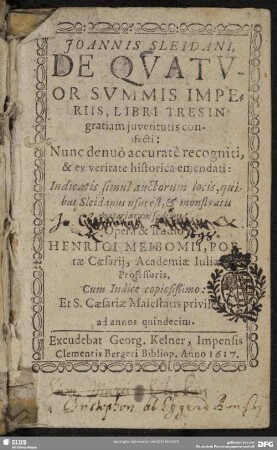 JOANNIS SLEIDANI,
DE QVATV-
OR SVMMIS IMPE-
RIIS, LIBRI TRES IN
gratiam juventutis con-
fecti:
Nunc denuò accuratè recogniti,
& ex veritate historica emendati:
Indicatis simul auctorum locis, qui-
bus Sleidanus usus est, & monstratis
Opera & studio
HENRICI MEIBOMII, POE-
tæ Cæsarij, Academiæ Iuliæ
Professoris.
Cum Indice copiosissimo:
Et S. Cæsariæ Maiestatis privile
ad annos quindecim.
Excudebat Georg. Kelner, Impensis
Clementis Bergeri Bibliop. Anno 1617.
SLUB